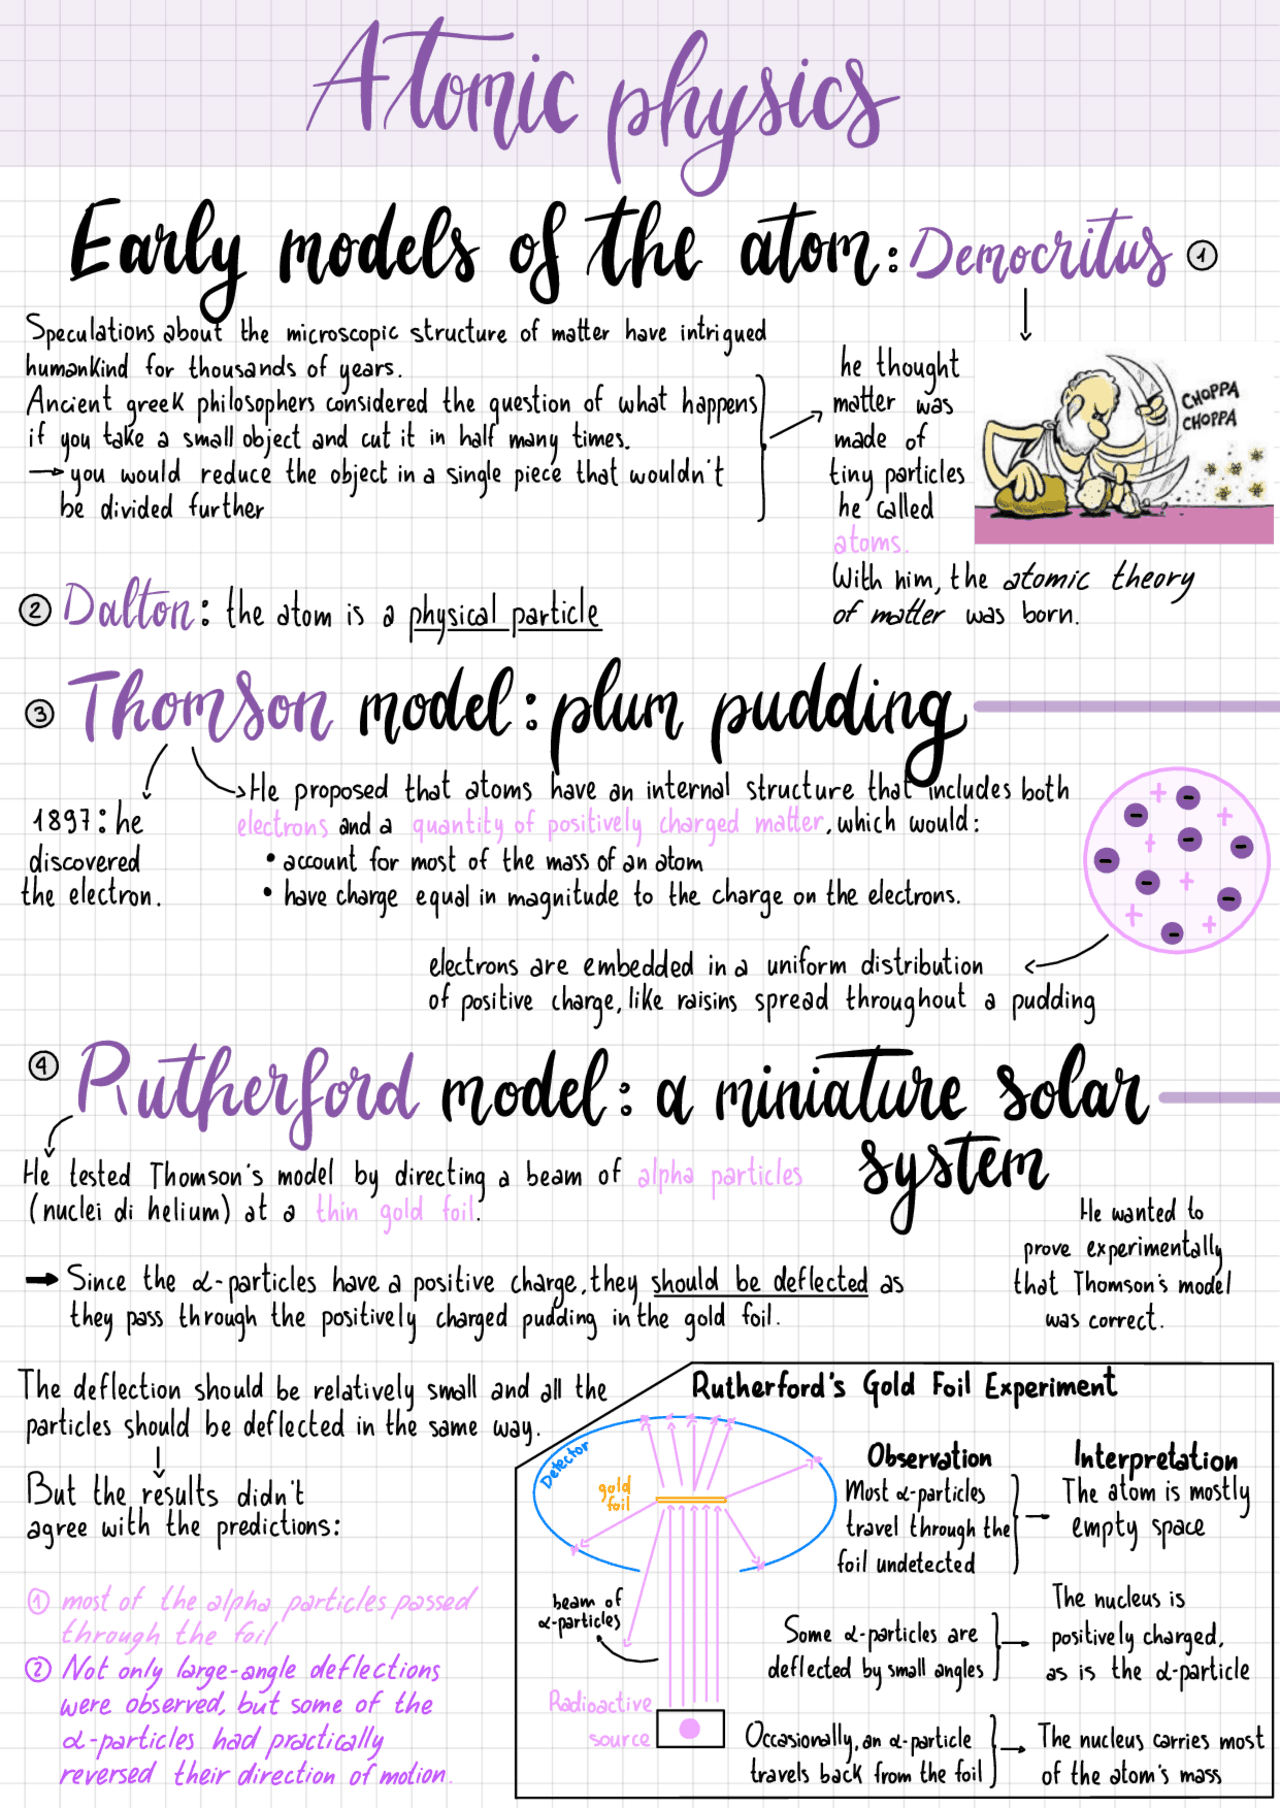 Atomic physics
Early models of the atom: Democritus ①
Speculations about the microscopic structure of matter have intrigued
humankind for thousands of years.
Ancient greek philosophers considered the question of what happens
if you take a small object and cut it in half many times.
→ you would reduce the object in a single piece that wouldn't
be divided further
he thought
matter was
made of
tiny particles
he called
atoms.
With him, the atomic theory
of matter was born.
CHOPPA
CHOPPA
② Dalton: the atom is a physical particle
③ Thomson model: plum pudding
1897: he
discovered
the electron.
He proposed that atoms have an internal structure that includes both
electrons and a quantity of positively charged matter, which would:
• account for most of the mass of an atom
• have charge equal in magnitude to the charge on the electrons.
electrons are embedded in a uniform distribution
of positive charge, like raisins spread throughout a pudding
④ Rutherford model: a miniature solar
system
He tested Thomson's model by directing a beam of alpha particles
(nuclei di helium) at a thin gold foil.
He wanted to
prove experimentally
that Thomson's model
was correct.
→ Since the α-particles have a positive charge, they should be deflected as
they pass through the positively charged pudding in the gold foil.
The deflection should be relatively small and all the
particles should be deflected in the same way.
But the results didn't
agree with the predictions:
① most of the alpha particles passed
through the foil
② Not only large-angle deflections
were observed, but some of the
α-particles had practically
reversed their direction of motion.
Rutherford's Gold Foil Experiment
Detector
gold
foil
beam of
α-particles
Radioactive
source
Observation
Interpretation
Most α-particles
travel through the
foil undetected
The atom is mostly
empty space
Some α-particles are
deflected by small angles
The nucleus is
positively charged,
as is the α-particle
Occasionally, an α-particle
travels back from the foil
The nucleus carries most
of the atom's mass